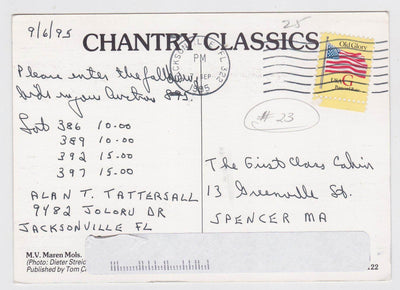 9/6/95
25
CHANTRY CLASSICS
JACKSONVILLE, FL 322
PM
SEP
1995
Old Glory
USA G
Postcard Rate
Please enter the following
bids in your Auction 895.
Lot 386 10.00
389 10.00
392 15.00
397 15.00
ALAN T. TATTERSALL
9482 JOLORU DR
JACKSONVILLE FL
#23
The First Class Cabin
13 Greenville St.
SPENCER MA
M.V. Maren Mols.
(Photo: Dieter Streic
Published by Tom C
.22